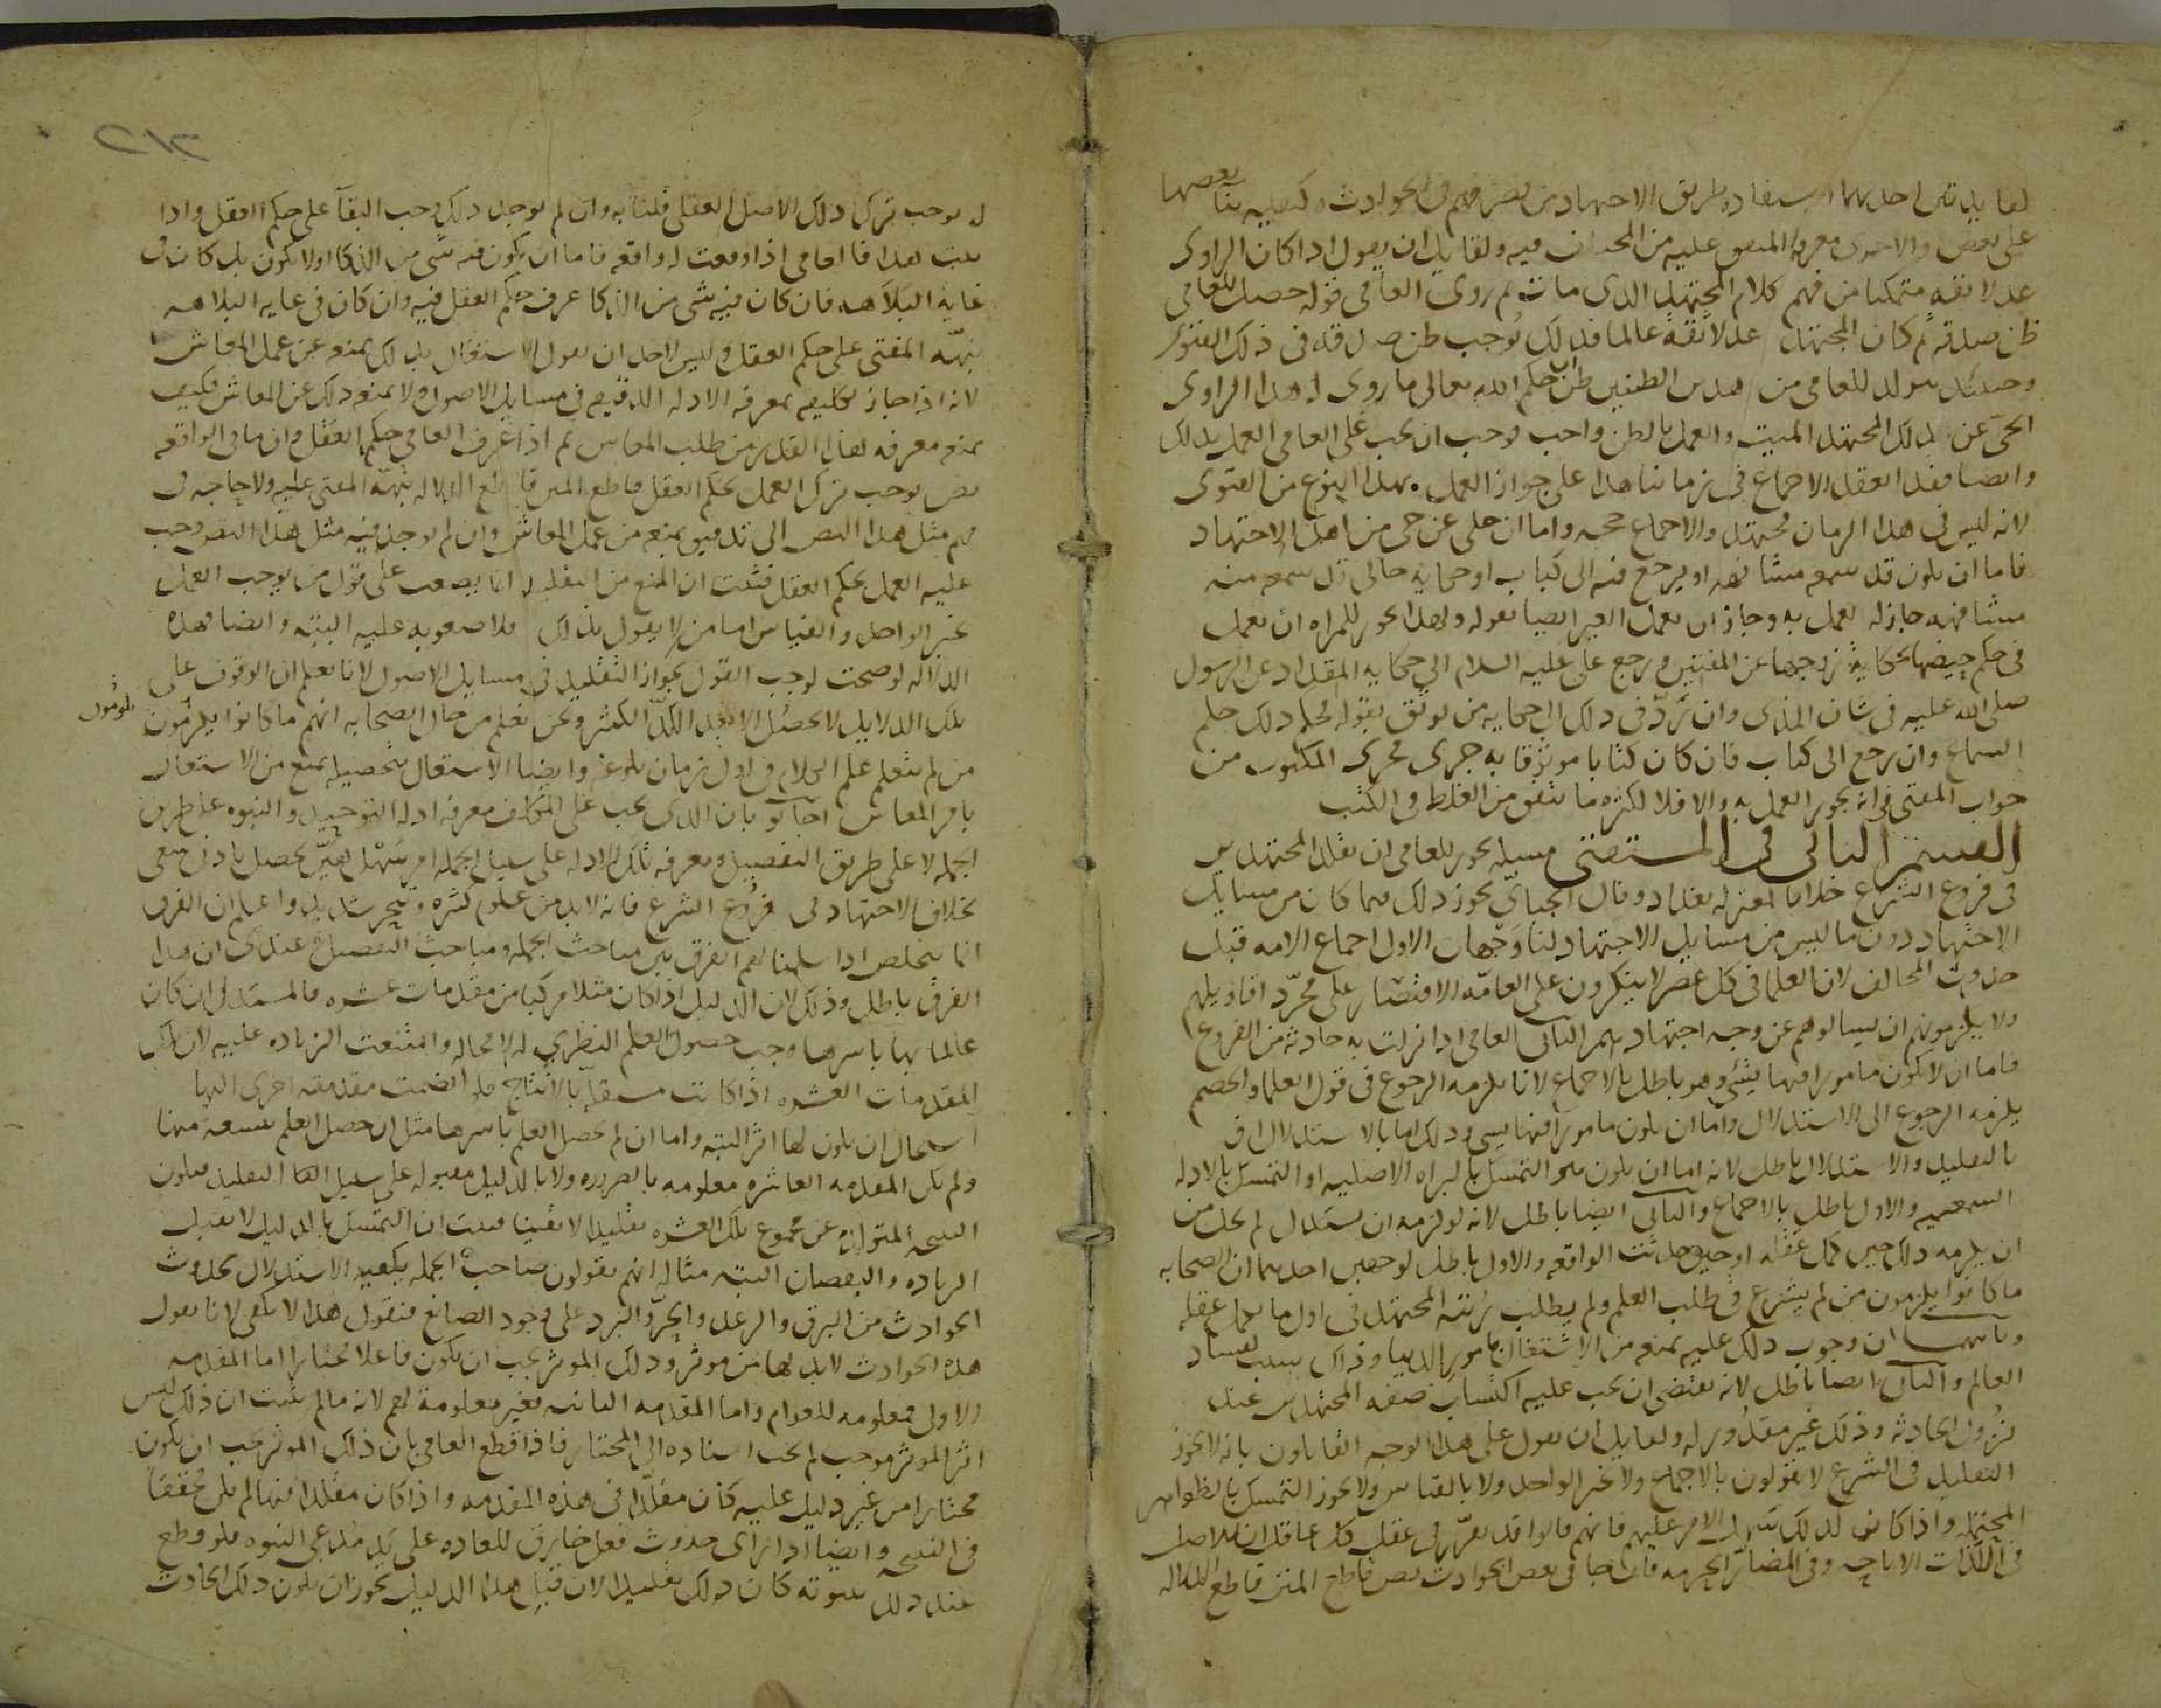 لفايدتين احديهما استفاده طريق الاجتهاد من تصرفهم في الحوادث وكيفيه بنا بعضها
على بعض والاخرى معرفه المتفق عليه من المختلف فيه ولقايل ان يقول اذا كان الراوى
عدلا ثقه متمكنا من فهم كلام المجتهد الذى مات ثم روى العامى قوله حصل للعامى
ظن صدقه ثم كان المجتهد عدلا ثقه عالما فذلك يوجب ظن صدقه في ذلك الفتوى
وحينئذ يتولد للعامى من هذين الظنين ظن ان حكم الله تعالى ما روى له هذا الراوى
الحى عن ذلك المجتهد الميت والعمل بالظن واجب فوجب ان يجب على العامى العمل بذلك
وايضا فقد انعقد الاجماع في زماننا هذا على جواز العمل بهذا النوع من الفتوى
لانه ليس في هذا الزمان مجتهد والاجماع حجه واما ان حكى عن حى من اهل الاجتهاد
فاما ان يكون قد سمعه مشافهه او يرجع فيه الى كتاب او حكايه حاكى فان سمعه منه
مشافهه جاز له العمل به وجاز ان يعمل الغير ايضا بقوله ولهذا يجوز للمراه ان تعمل
في حكم حيضها بحكايه زوجها عن المفتين ورجع على عليه السلام الى حكايه المقداد عن الرسول
صلى الله عليه في شان المذى وان رد في ذلك الى حكايه من يوثق بقوله فحكم ذلك حكم
السماع وان رجع الى كتاب فان كان كتابا موثوقا به جرى مجرى المكتوب من
جواب المفتى في انه يجوز العمل به والا فلا لكثره ما يتفق من الغلط في الكتب
القسم الثانى في المستفتى مسله يجوز للعامى ان يقلد المجتهدين
في فروع الشرع خلافا لمعتزله بغداد وقال الجبائى يجوز ذلك فيما كان من مسايل
الاجتهاد دون ما ليس من مسايل الاجتهاد لنا وجهان الاول اجماع الامه قبل
حدوث المخالف لان العلما في كل عصر لا ينكرون على العامه الاقتصار على مجرد اقاويلهم
ولا يلزمونهم ان يسالوهم عن وجه اجتهادهم الثانى العامى اذا نزلت به حادثه من الفروع
فاما ان لا يكون مامورا فيها بشى وهو باطل بالاجماع لانا نلزمه الرجوع في قول العلما والخصم
يلزمه الرجوع الى الاستدلال واما ان يكون مامورا فيها بشى وذلك اما بالاستدلال او
بالتقليد والاستدلال باطل لانه اما ان يكون هو التمسك بالبراه الاصليه او التمسك بالادله
السمعيه والاول باطل بالاجماع والثانى ايضا باطل لانه لو لزمه ان يستدل لم يخل من
ان يلزمه ذلك حين كمل عقله او حين حدثت الواقعه والاول باطل لوجهين احدهما ان الصحابه
ما كانوا يلزمون من لم يشرع في طلب العلم ولم يطلب رتبه المجتهد في اول ما كمل عقله
وثانيهما ان وجوب ذلك عليه يمنعه من الاشتغال بامور الدنيا وذلك سبب لفساد
العالم والثانى ايضا باطل لانه يقتضى ان يجب عليه اكتساب صفه المجتهدين عند
نزول الحادثه وذلك غير مقدور له ولقايل ان يقول على هذا الوجه القايلون بانه لا يجوز
التقليد في الشرع لا يقولون بالاجماع ولا بخبر الواحد ولا بالقياس ولا يجوز التمسك بالظواهر
المحتمله واذا كان كذلك سهل الامر عليهم فانهم قالوا قد تقرر في عقل كل عاقل ان الاصل
في اللذات الاباحه وفي المضار الحرمه فان جا في بعض الحوادث نص قاطع المتن قاطع الدلاله
٢١٣
له يوجب ترك ذلك الاصل العقلى قلنا به وان لم يوجد ذلك وجب البقا على حكم العقل واذا
ثبت هذا فالعامى اذا وقعت له واقعه فاما ان يكون فيه شى من الذكا او لا يكون بل كان في
غايه البلاهه فان كان فيه شى من الذكا عرف حكم العقل فيه وان كان في غايه البلاهه
ينبهه المفتى على حكم العقل وليس لاحد ان يقول الاشتغال بذلك يمنع عن عمل المعاش
لانه اذا جاز تكليفه بمعرفه الادله الدقيقه في مسايل الاصول ولا يمنعه ذلك عن المعاش فكيف
يمنعه معرفه هذا القدر من طلب المعاش ثم اذا عرف العامى حكم العقل وان ما في الواقعه
نص يوجب ترك العمل بحكم العقل قاطع المتن قاطع الدلاله ينبهه المفتى عليه ولا حاجه في
فهم مثل هذا النص الى تدقيق يمنعه من عمل المعاش وان لم يوجد فيه مثل هذا النص وجب
عليه العمل بحكم العقل فثبت ان المنع من التقليد انما يصعب على قول من يوجب العمل
بخبر الواحد والقياس اما من لا يقول بذلك فلا صعوبه عليه البته وايضا فهذه
الدلاله لو صحت لوجب القول بجواز التقليد في مسايل الاصول لانا نعلم ان الوقوف على
تلك الدلايل لا يحصل الا بعد الكد الكثير ونحن نعلم من حال الصحابه انهم ما كانوا يلزمون
يلومون
من لم يتعلم علم الكلام في اول زمان بلوغه وايضا الاشتغال بتحصيله يمنع من الاشتغال
بامر المعاش اجابوا بان الذى يجب على المكلف معرفه ادله التوحيد والنبوه على طريق
الجمله لا على طريق التفصيل ومعرفه تلك الادله على سبيل الجمله امر سهل هين يحصل بادنى سعى
بخلاف الاجتهاد في فروع الشرع فانه لابد من علوم كثيره وتبحر شديد واعلم ان الفرق
انما يتخلص اذا سلمنا لهم الفرق بين مباحث الجمله ومباحث التفصيل وعندى ان هذا
الفرق باطل وذلك لان الدليل اذا كان مثلا مركبا من مقدمات عشره فالمستدل ان كان
عالما بها باسرها وجب حصول العلم النظرى له لا محاله وامتنعت الزياده عليه لان تلك
المقدمات العشره اذا كانت مستقله بالانتاج فلو انضمت مقدمه اخرى اليها
استحال ان يكون لها اثر البته واما ان لم يحصل العلم باسرها مثل ان حصل العلم بتسعه منها
ولم تكن المقدمه العاشره معلومه بالضروره ولا بالدليل مقبوله على سبيل التقليد فيكون
النتيجه المتولده عن مجموع تلك العشره تقليدا لا يقينا فثبت ان التمسك بالدليل لا يقبل
الزياده والنقصان البته مثاله انهم يقولون صاحب الجمله يكفيه الاستدلال بحدوث
الحوادث من البرق والرعد والحر والبرد على وجود الصانع فنقول هذا لا يكفى لانا نقول
هذه الحوادث لابد لها من موثر وذلك الموثر يجب ان يكون فاعلا مختارا اما المقدمه
الاولى فمعلومه للعوام واما المقدمه الثانيه فغير معلومه لهم لانه ما لم يثبت ان ذلك ليس
اثر الموثر موجب لم يجب اسناده الى المختار فاذا قطع العامى بان ذلك الموثر يجب ان يكون
مختارا من غير دليل عليه كان مقلدا في هذه المقدمه واذا كان مقلدا فيها لم يكن محققا
في النتيجه وايضا اذا راى حدوث فعل خارق للعاده على يد مدعى النبوه فلو قطع
عند ذلك بنبوته كان ذلك تقليدا لان قبل هذا الدليل يجوز ان يكون ذلك الحادث